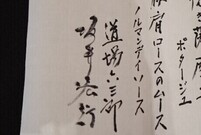 ポタージュ
豚肩ロースのムース
ノルマンディソース
道場六三郎
坂井宏行